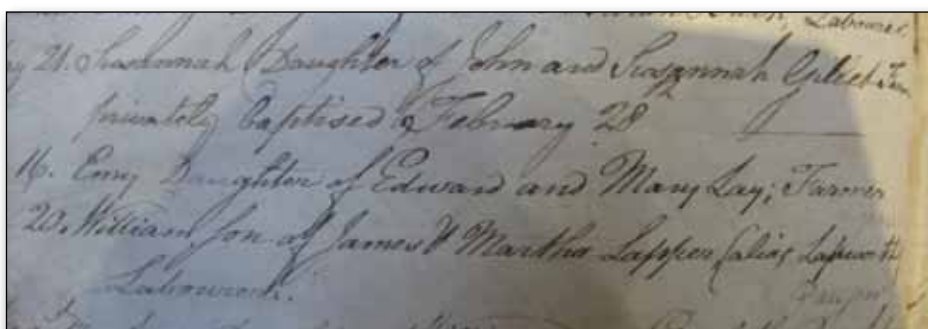 Labourer
21. Susannah Daughter of John and Susannah
privately baptised February 28
16. Emy Daughter of Edward and Mary Lay; Farmer
20. William son of James & Martha Lapper (alias Lapworth
Labourer.